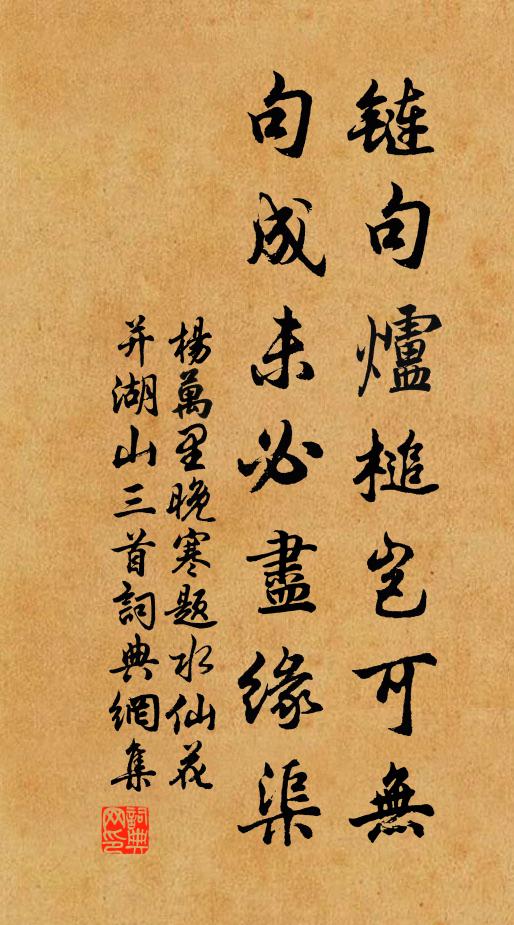 鏈句爐槌豈可無
句成未必盡緣渠
楊萬里晚寒題水仙花
并湖山三首詞典網集
詞典
网印